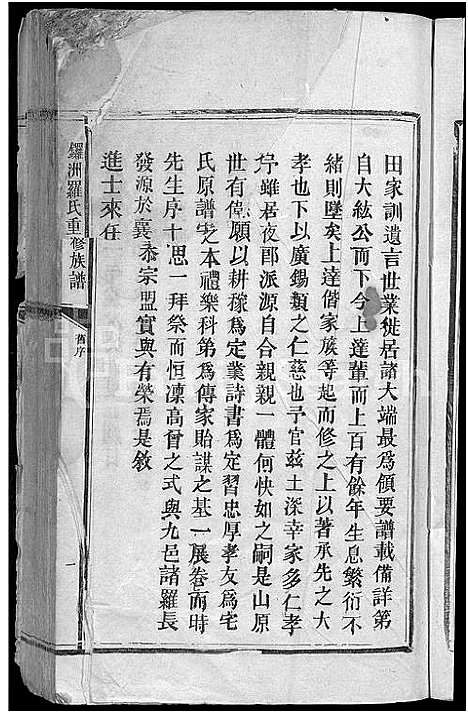 田家訓遺言世業徙居諸大端最為領要譜載備詳第
自大紘公而下今上達輩而上百有餘年生息繁衍不
緒則墜矣上達偕家族等起而修之上以著承先之大
孝也下以廣錫類之仁慈也予官茲土深幸家多仁孝
雖居夜郎派源自合親親一體何快如之嗣是山原
世有偉願以耕稼為定業詩書為定習忠厚孝友為宅
氏原譜之本禮樂科第為傳家貽謀之基一展卷而時
先生序十思一拜祭而恒凜高曾之式與九邑諸羅長
發源於襄忝宗盟實與有榮焉是敘
進士來任
鑼洲羅氏重修族譜
舊序
一